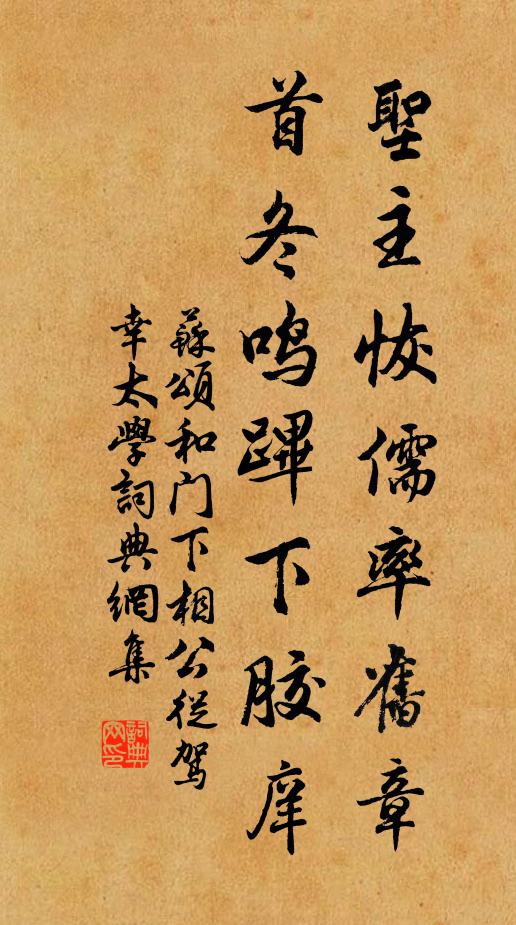 聖主恢儒率舊章
首冬鳴蹕下膠庠
蘇頌和门下相公從駕
幸太學詞典網集
詞典网印